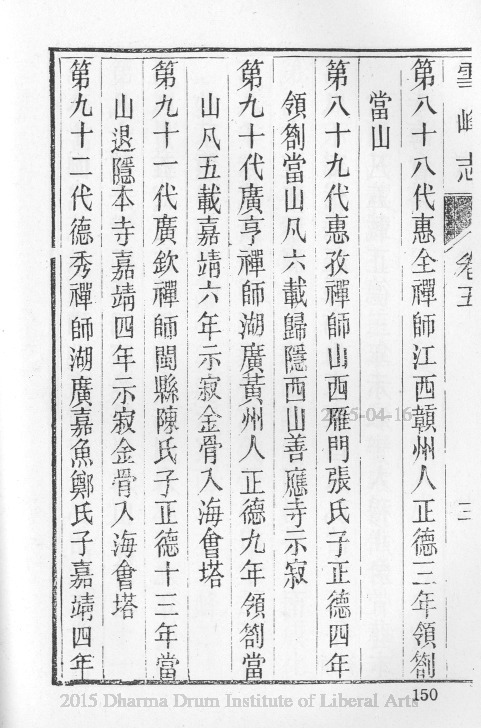 雪峰志 卷五 三
第八十八代惠全禪師江西贑州人正德三年領劄
當山
第八十九代惠孜禪師山西雁門張氏子正德四年
領劄當山凡六載歸隱西山善應寺示寂
第九十代廣亨禪師湖廣黃州人正德九年領劄當
山凡五載嘉靖六年示寂金骨入海會塔
第九十一代廣欽禪師閩縣陳氏子正德十三年當
山退隱本寺嘉靖四年示寂金骨入海會塔
第九十二代德秀禪師湖廣嘉魚鄭氏子嘉靖四年
2015-04-16
150
2015 Dharma Drum Institute of Liberal Arts